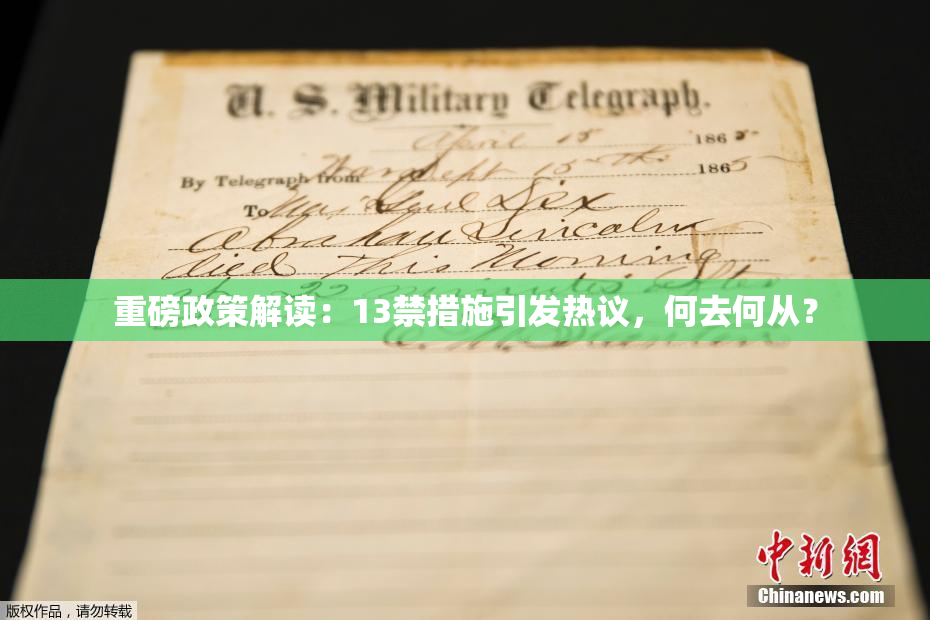 U. S. Military Telegraph.
April 15 1865
By Telegraph from War Dept 15th 1865
To Maj Genl Dix
Abraham Lincoln
died This Morning
22 minutes after
重磅政策解读：13禁措施引发热议，何去何从？
E. M. Stanton
中新网
Chinanews.com
版权作品，请勿转载